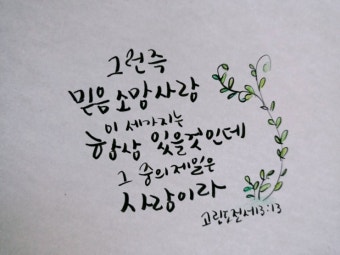 그런즉
믿음 소망 사랑
이 세가지는
항상 있을것인데
그 중의 제일은
사랑이라
고린도전서13:13